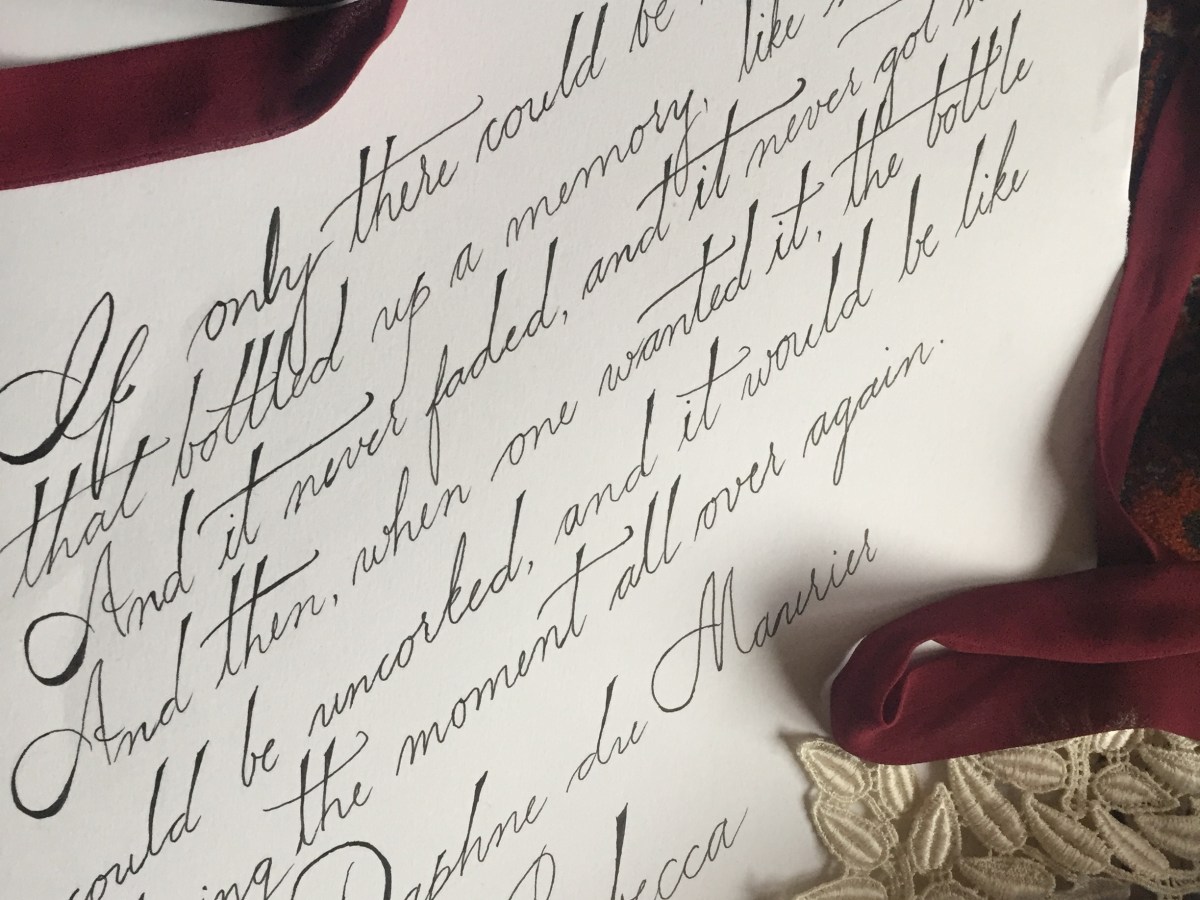 If only there could be
that bottled up a memory, like
And it never faded, and it never got
And then, when one wanted it, the bottle
could be uncorked, and it would be like
the moment all over again.
Daphne du Maurier